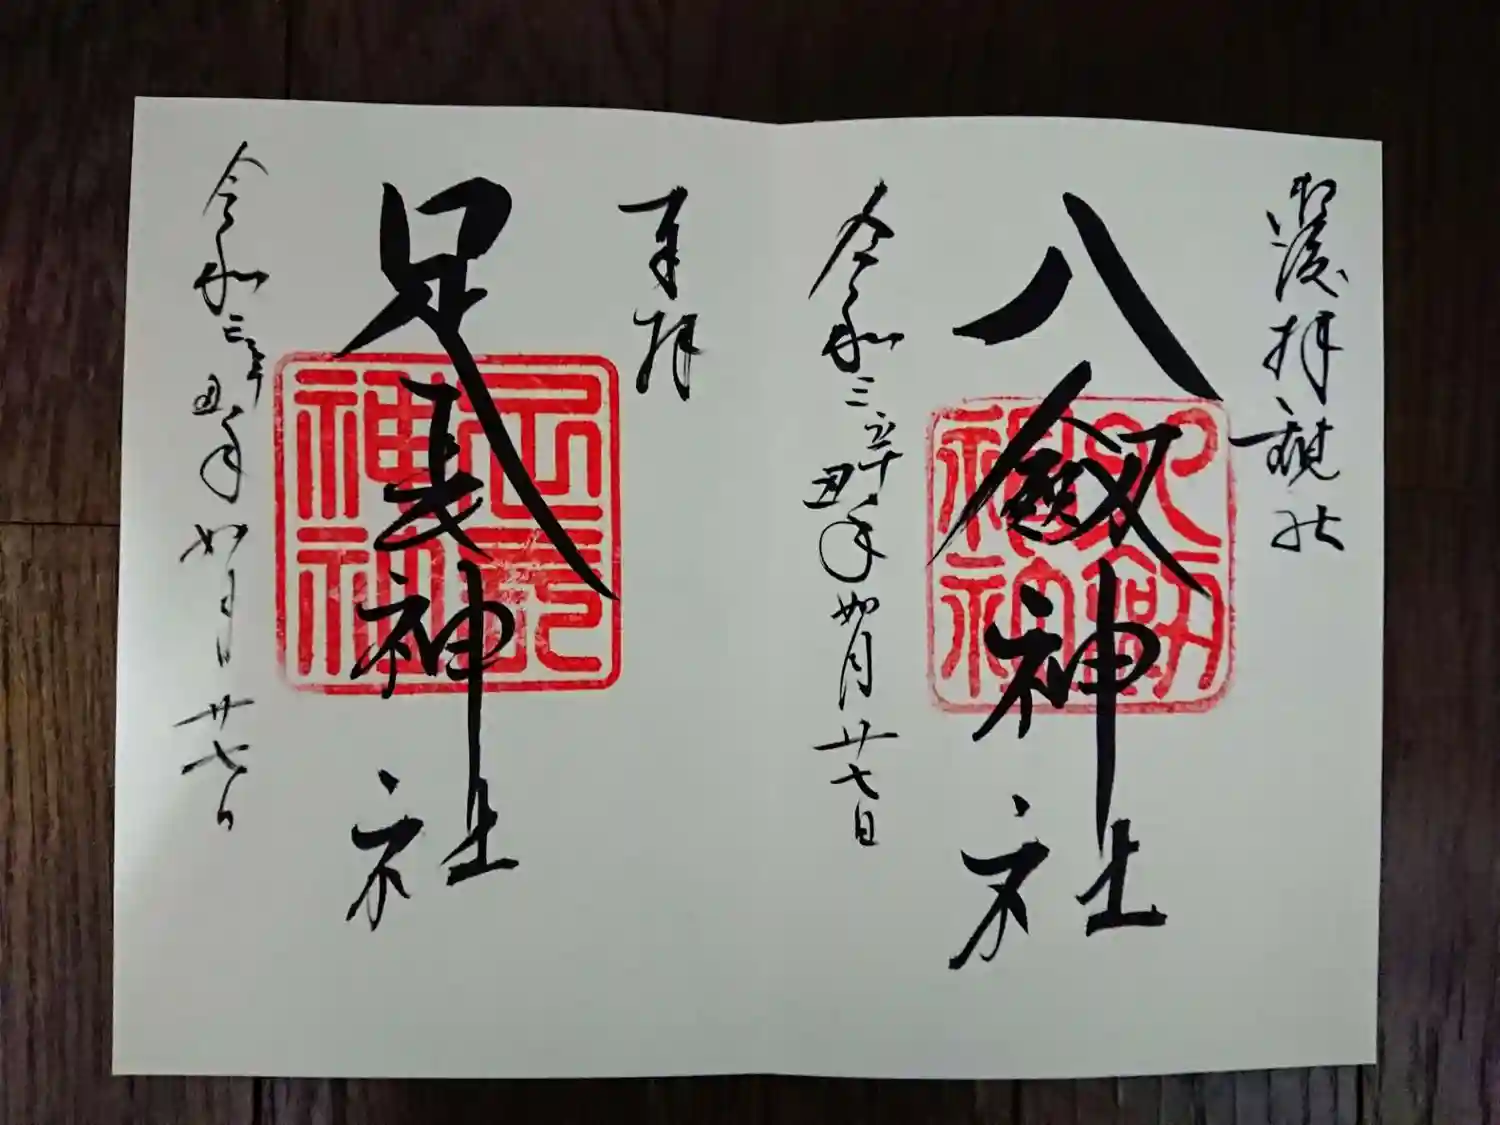 御渡拝観社
八劔神社
八劔神社
令和三辛丑年如月廿七日
奉拝
足長神社
足長神社
令和三辛丑年如月廿七日